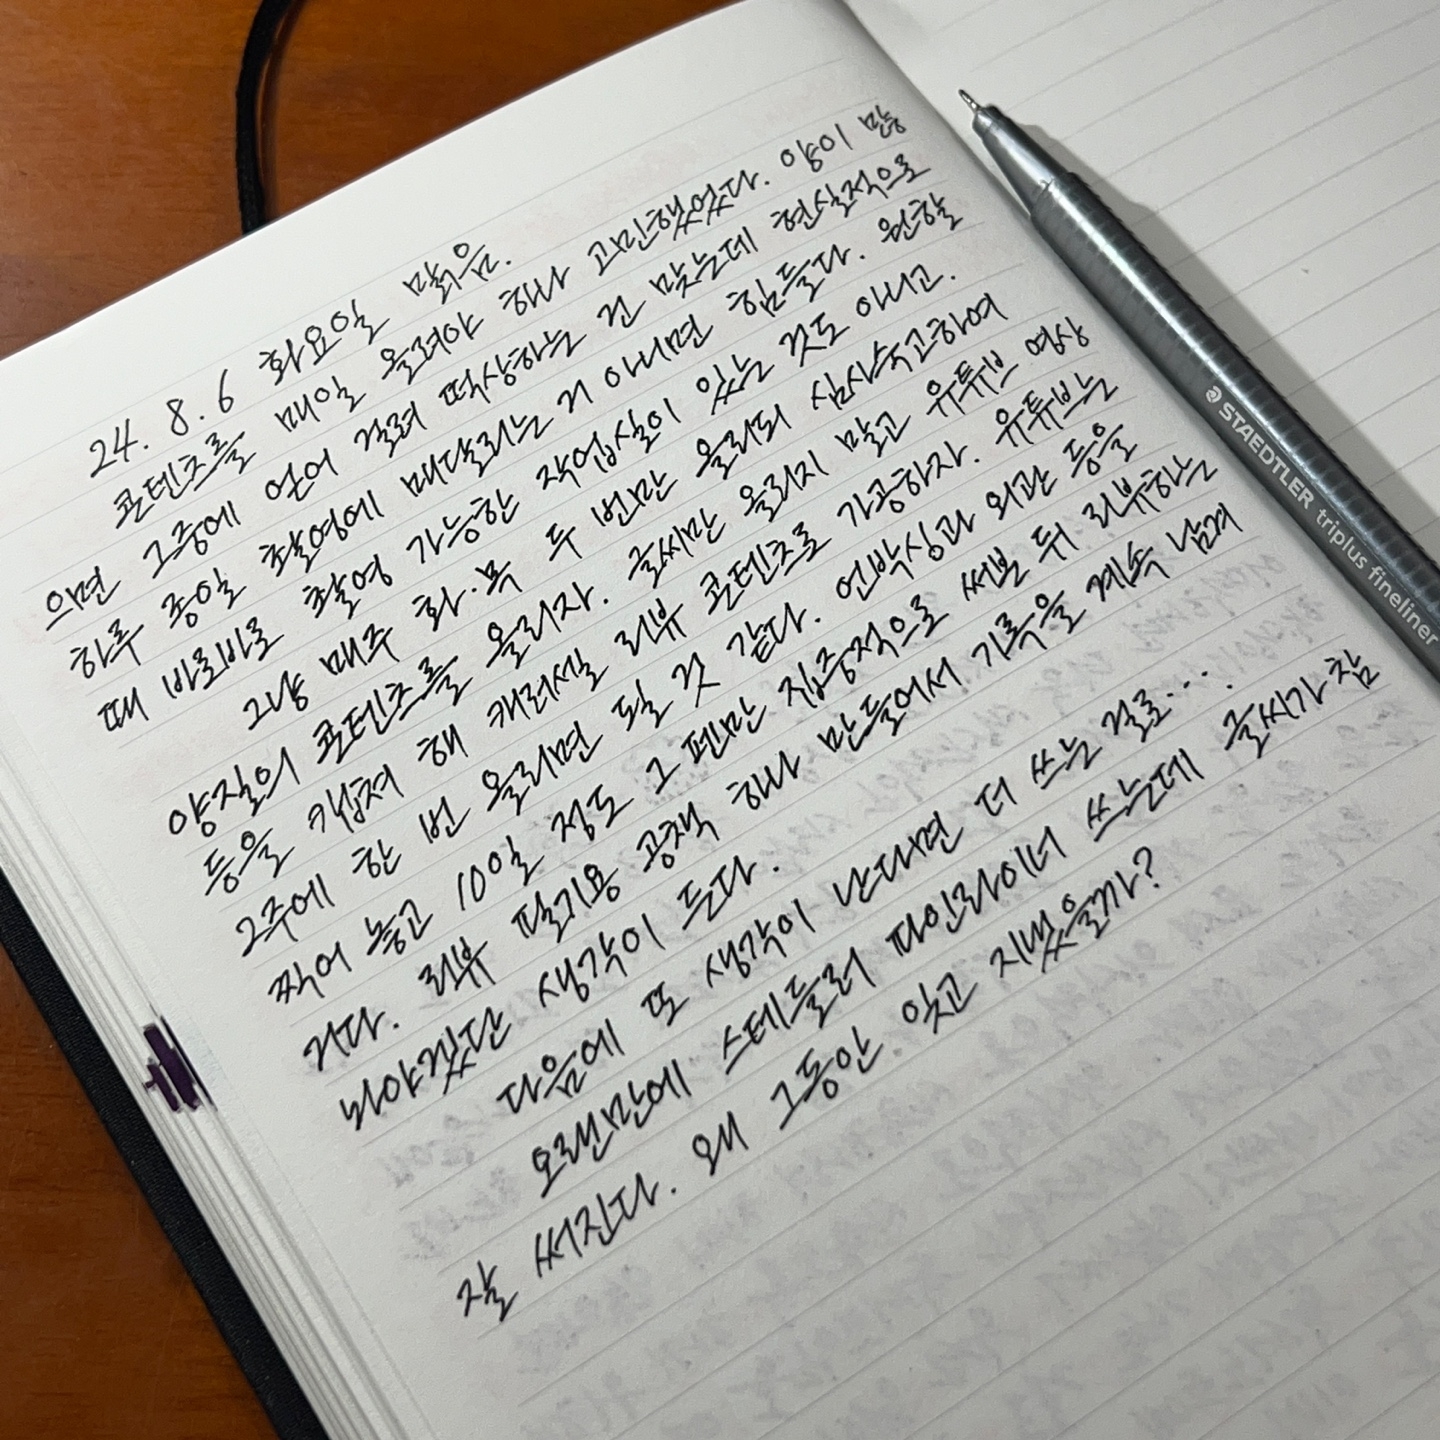 24. 8. 6 화요일 맑음.
콘텐츠를 매일 올려야 하나 고민했었다. 양이 많
으면 그중에 얻어 걸려 떡상하는 건 맞는데 현실적으로
하루 종일 촬영에 매달리는 거 아니면 힘들다. 원할
때 바로바로 촬영 가능한 작업실이 있는 것도 아니고.
그냥 매주 화·목 두 번만 올리되 심사숙고하여
양질의 콘텐츠를 올리자. 글씨만 올리지 말고 유튜브 영상
등을 캡쳐 해 캐러셀 리뷰 콘텐츠로 가공하자. 유튜브는
2주에 한 번 올리면 될 것 같다. 언박싱과 외관 등을
찍어 놓고 10일 정도 그 펜만 집중적으로 써본 뒤 리뷰하는
거다. 리뷰 필기용 공책 하나 만들어서 기록을 계속 남겨
놔야겠단 생각이 든다.
다음에 또 생각이 난다면 더 쓰는 걸로....
오랜만에 스테들러 파인라이너 쓰는데 글씨가 참
잘 써진다. 왜 그동안 잊고 지냈을까?
STAEDTLER triplus fineliner